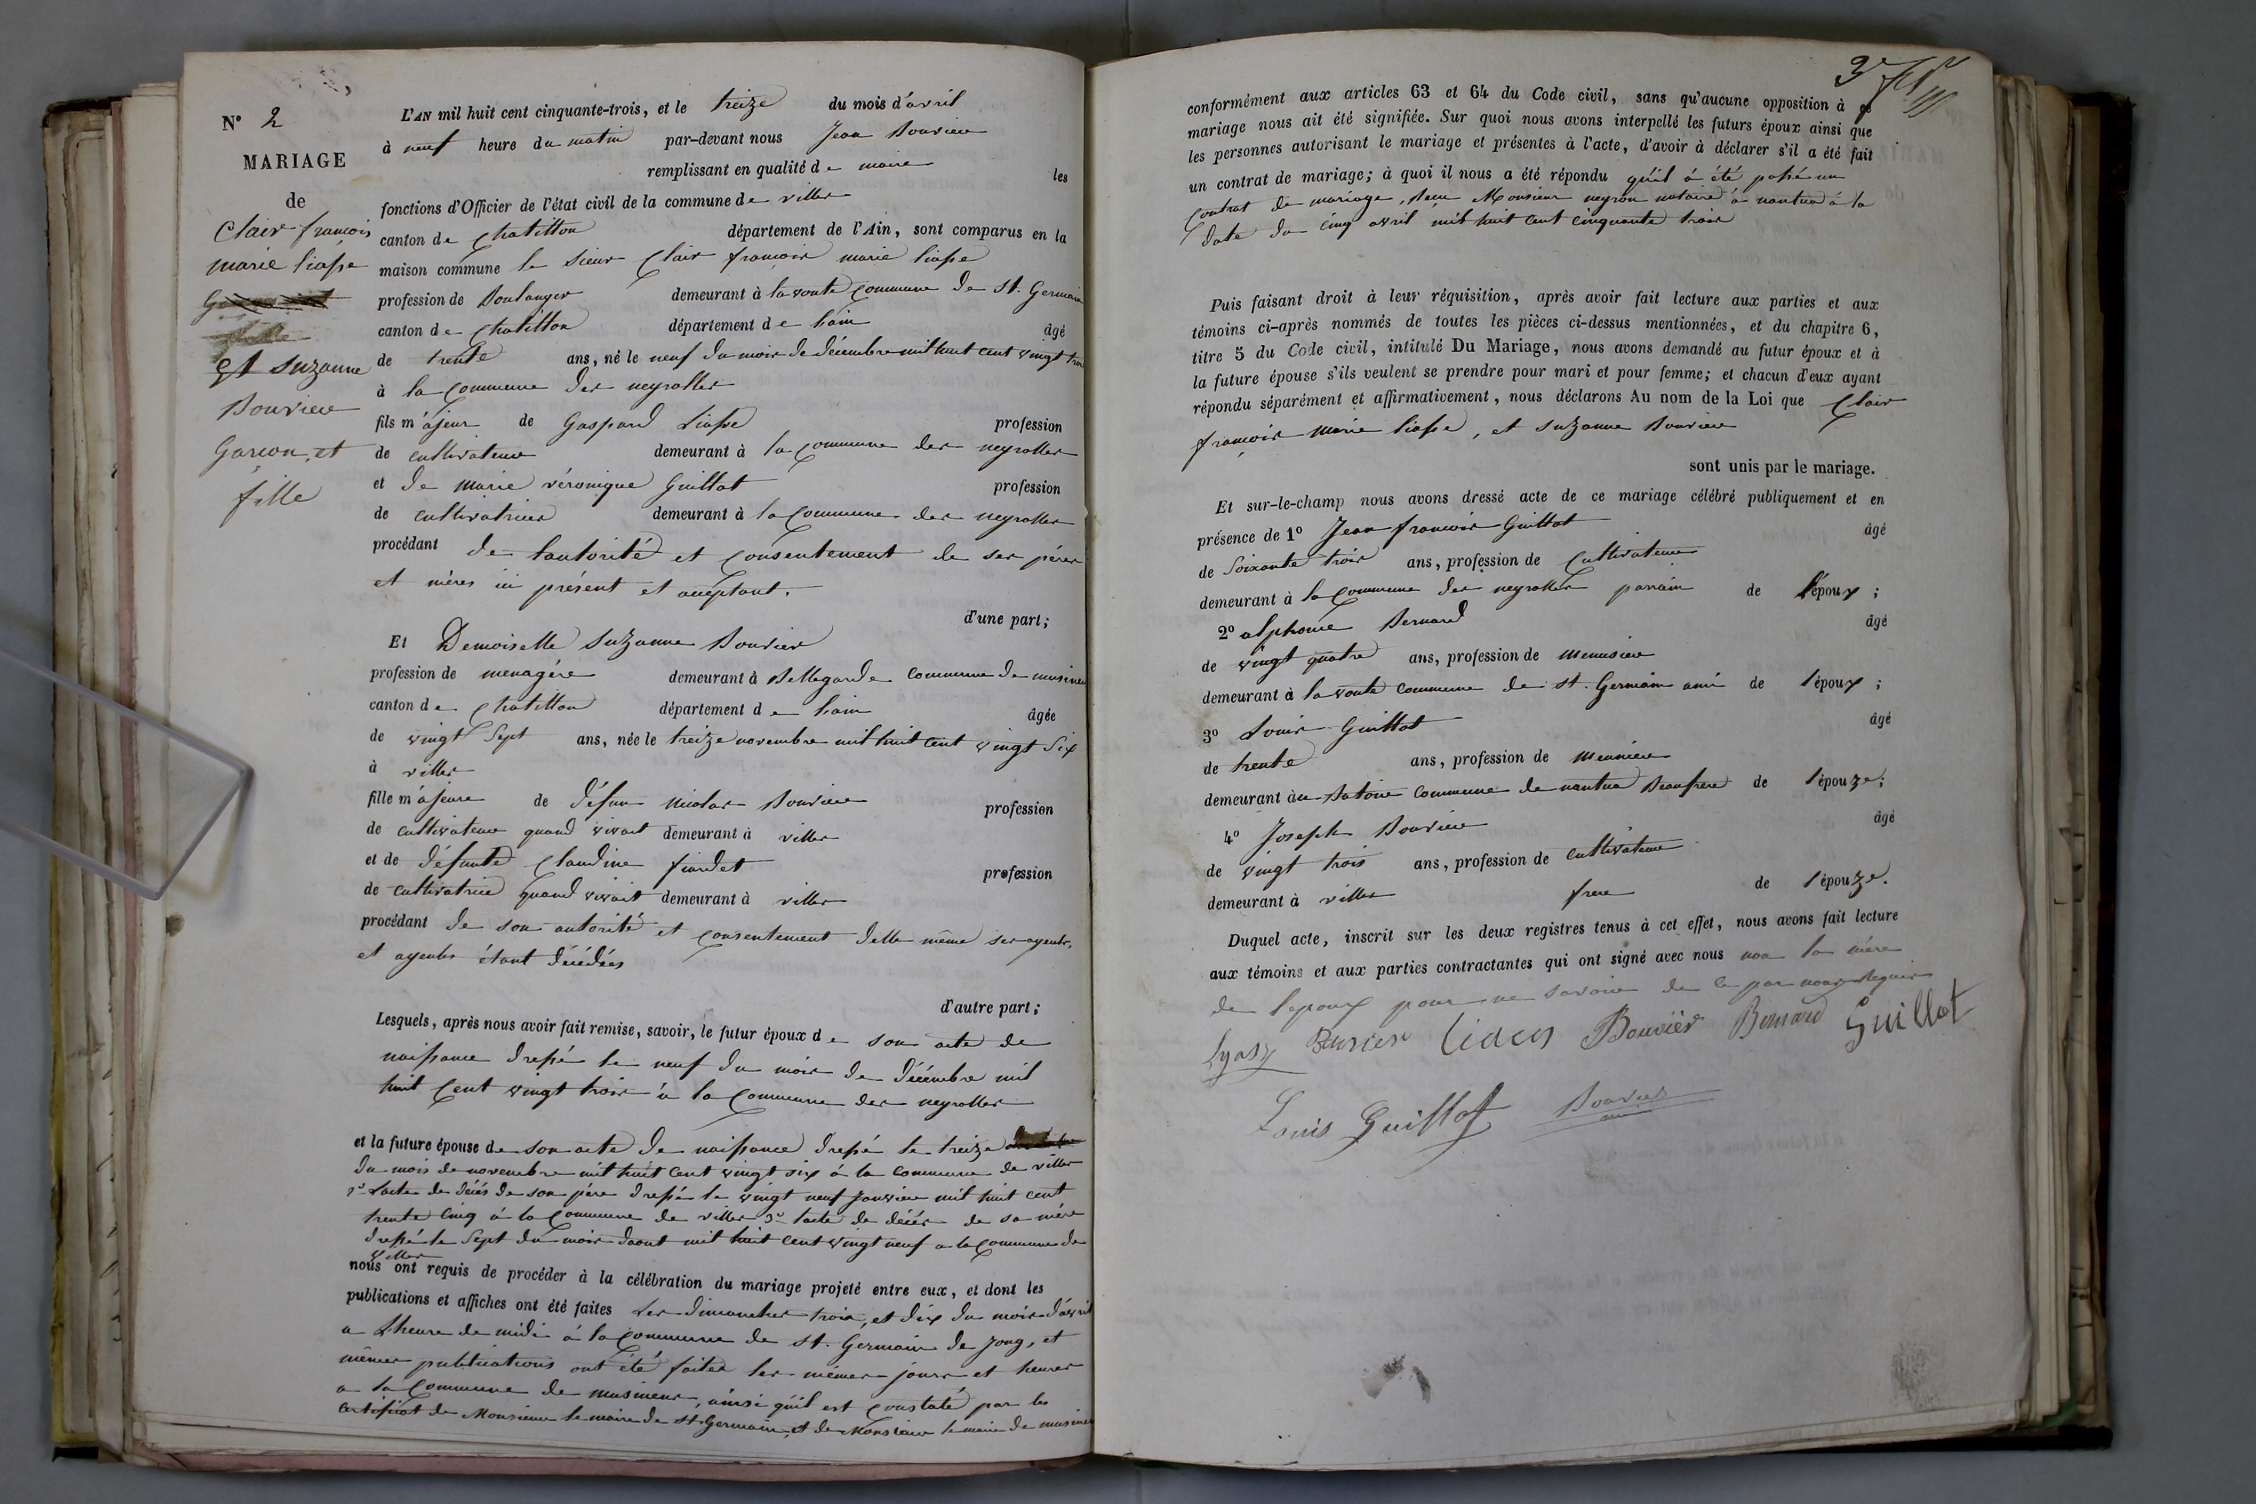 N° 2
MARIAGE
de
Clair françois
marie liasse
et suzanne
Bouvier
Garcon, et
fille
L'AN mil huit cent cinquante-trois, et le treize du mois d'avril
à neuf heure du matin par-devant nous Jean Bouvier
remplissant en qualité de maire les
fonctions d'Officier de l'état civil de la commune de villes
canton de Chatillon département de l'Ain, sont comparus en la
maison commune le sieur Clair françois marie liasse
profession de Boulanger demeurant à la voute commune de St. Germain
canton de Chatillon département de lain âgé
de trente ans, né le neuf du mois de décembre mil huit cent vingt trois
à la Commune des neyrolles
fils majeur de Gaspard Liasse profession
de cultivateur demeurant à la commune des neyrolles
et de marie véronique Guillot profession
de cultivatrice demeurant à la Commune des neyrolles
procédant de lautorité et consentement de ses péres
et mères ici présent et acceptant.
d'une part;
Et Demoiselle suzanne Bouvier
profession de menagére demeurant à Bellegarde commune de musinens
canton de Chatillon département de lain âgée
de vingt sept ans, née le treize novembre mil huit cent vingt six
à villes
fille majeure de défun nicolas Bouvier profession
de cultivateur quand vivait demeurant à villes
et de défunte Claudine fiardet profession
de cultivatrice quand vivait demeurant à villes
procédant de son autorité et consentement delle même ses ayeuls,
et ayeules étant décédées
d'autre part;
Lesquels, après nous avoir fait remise, savoir, le futur époux de son acte de
naissance dressé le neuf du mois de décembre mil
huit Cent vingt trois à la Commune des neyrolles
et la future épouse de son acte de naissance dressé le treize
du mois de novembre mil huit cent vingt six à la commune de villes
2° lacte de décés de son pére dressé le vingt neuf janvier mil huit cent
trente cinq à la Commune de villes 3° lacte de décés de sa mére
dressé le sept du mois daout mil huit cent vingt neuf a la commune de
villes
nous ont requis de procéder à la célébration du mariage projeté entre eux, et dont les
publications et affiches ont été faites les dimanches trois, et dix du mois d'avril
a Lheure de midi à la Commune de st. Germain de Joug, et
mêmes publications ont été faites les mêmes jours et heures
a la Commune de musinens, ainsi quil est constaté par les
certificat de Monsieur le maire de st. Germain, et de Monsieur le maire de musinens
conformément aux articles 63 et 64 du Code civil, sans qu'aucune opposition à ce
mariage nous ait été signifiée. Sur quoi nous avons interpellé les futurs époux ainsi que
les personnes autorisant le mariage et présentes à l'acte, d'avoir à déclarer s'il a été fait
un contrat de mariage; à quoi il nous a été répondu qu'il à été passé un
Contrat de mariage, Reçu Monsieur neyron notaire à nantua à la
date du cinq avril mil huit cent cinquante trois
Puis faisant droit à leur réquisition, après avoir fait lecture aux parties et aux
témoins ci-après nommés de toutes les pièces ci-dessus mentionnées, et du chapitre 6,
titre 5 du Code civil, intitulé Du Mariage, nous avons demandé au futur époux et à
la future épouse s'ils veulent se prendre pour mari et pour femme; et chacun d'eux ayant
répondu séparément et affirmativement, nous déclarons Au nom de la Loi que Clair
françois marie liasse, et suzanne Bouvier
sont unis par le mariage.
Et sur-le-champ nous avons dressé acte de ce mariage célébré publiquement et en
présence de 1° Jean françois Guillot âgé
de Soixante trois ans, profession de Cultivateur
demeurant à la Commune des neyrolles parrain de l'époux;
2° alphonse Bernard âgé
de vingt quatre ans, profession de menusier
demeurant à la voute commune de st. Germain ami de l'époux;
3° Louis Guillot âgé
de trente ans, profession de meunier
demeurant au Batoir commune de nantua Beaufrere de l'épouze;
4° Joseph Bouvier âgé
de vingt trois ans, profession de cultivateur
demeurant à villes frere de l'épouze.
Duquel acte, inscrit sur les deux registres tenus à cet effet, nous avons fait lecture
aux témoins et aux parties contractantes qui ont signé avec nous non la mére
de lepoux pour ne savoir de ce par nous Requis
Bouvier Bernard Guillot
Louis Guillot Bouvier